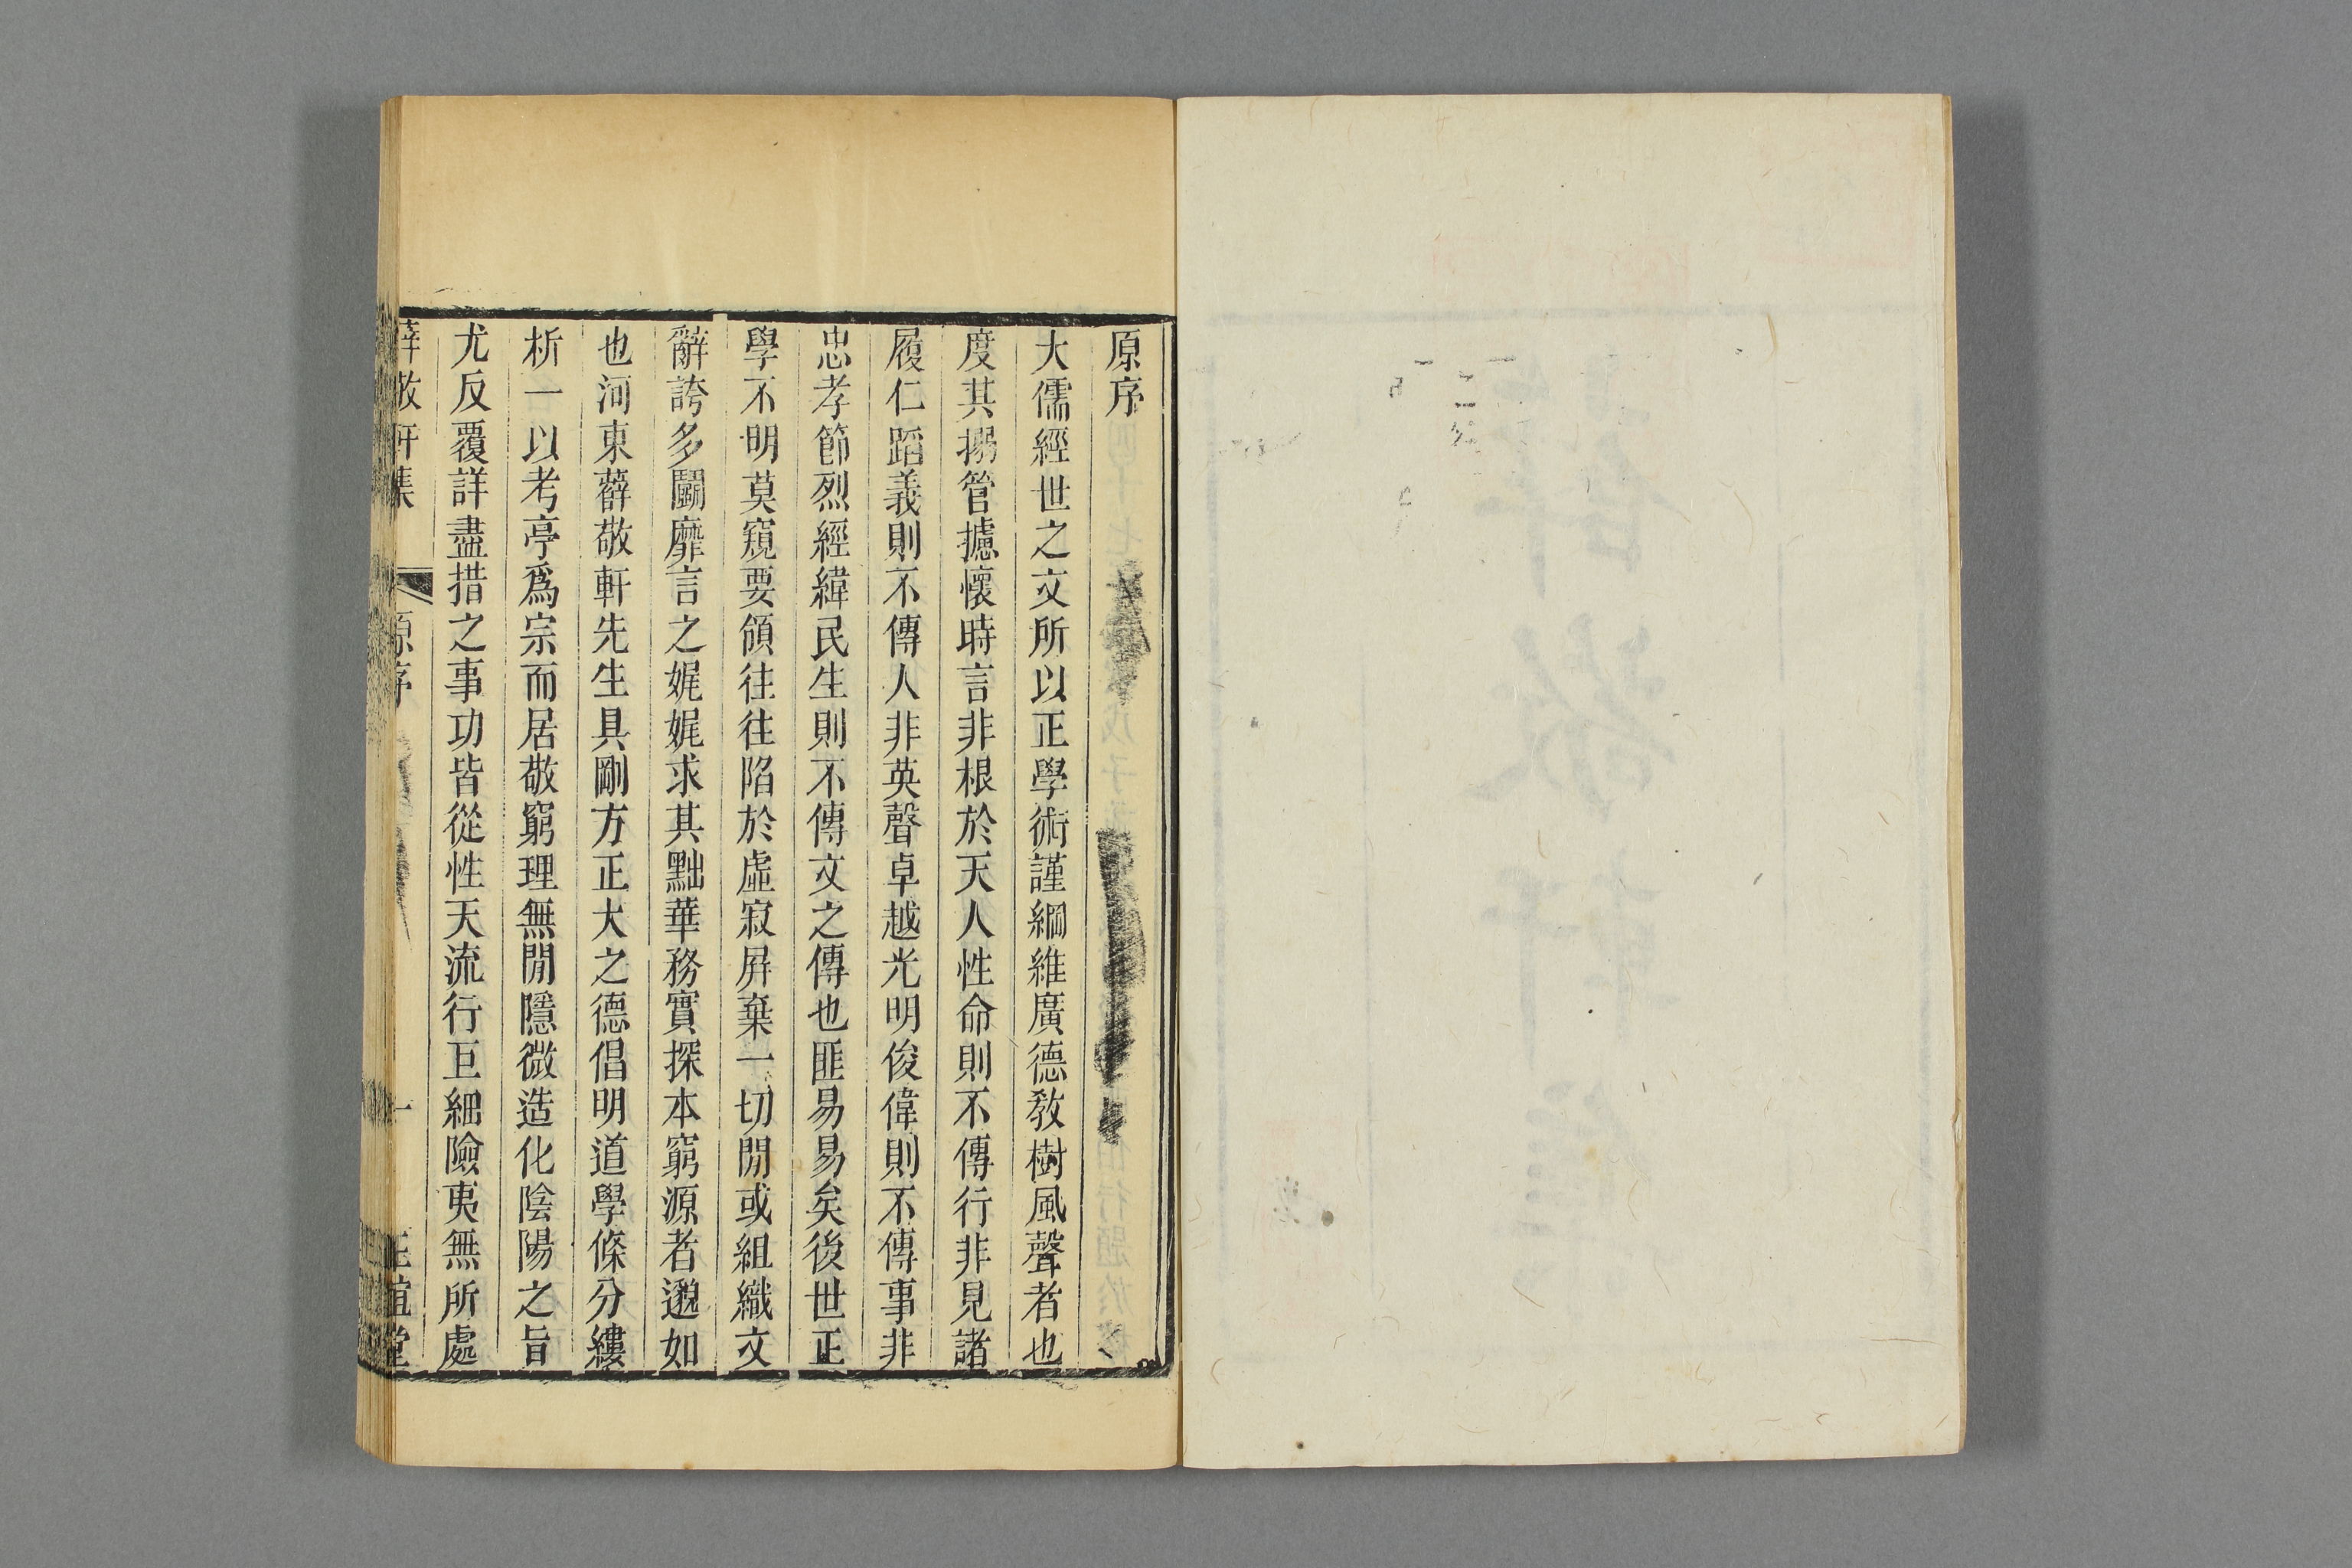 原序
大儒經世之文所以正學術謹綱維廣德教樹風聲者也
度其搦管攄懷時言非根於天人性命則不傳行非見諸
履仁蹈義則不傳人非英聲卓越光明俊偉則不傳事非
忠孝節烈經緯民生則不傳文之傳也匪易易矣後世正
學不明莫窺要領往往陷於虛寂屏棄一切閒或組織文
辭誇多鬬靡言之娓娓求其黜華務實探本窮源者邈如
也河東薛敬軒先生具剛方正大之德倡明道學條分縷
析一以考亭爲宗而居敬窮理無閒隱微造化陰陽之旨
尤反覆詳盡措之事功皆從性天流行巨細險夷無所處
薛敬軒集 原序 一 正誼堂